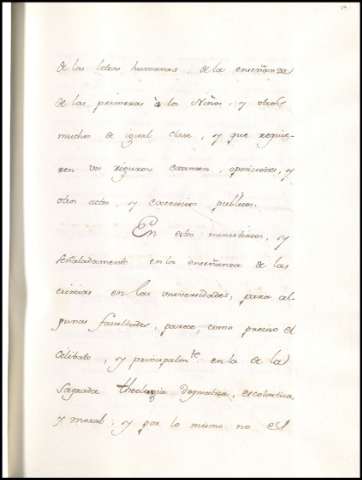 de las letras humanas, de la enseñanza
de las primeras à los Niños, y otros
muchos de igual clase, y que requie-
ren un riguroso examen, oposiciones, y
otros actos, y exercicios publicos.
En estos ministerios, y
señaladamente en la enseñanza de las
ciencias en las universidades, para al-
gunas facultades, parece, como preciso el
celibato, y principalm.te en la de la
Sagrada theologia Dogmatica, escolastica
y moral; y por lo mismo no es